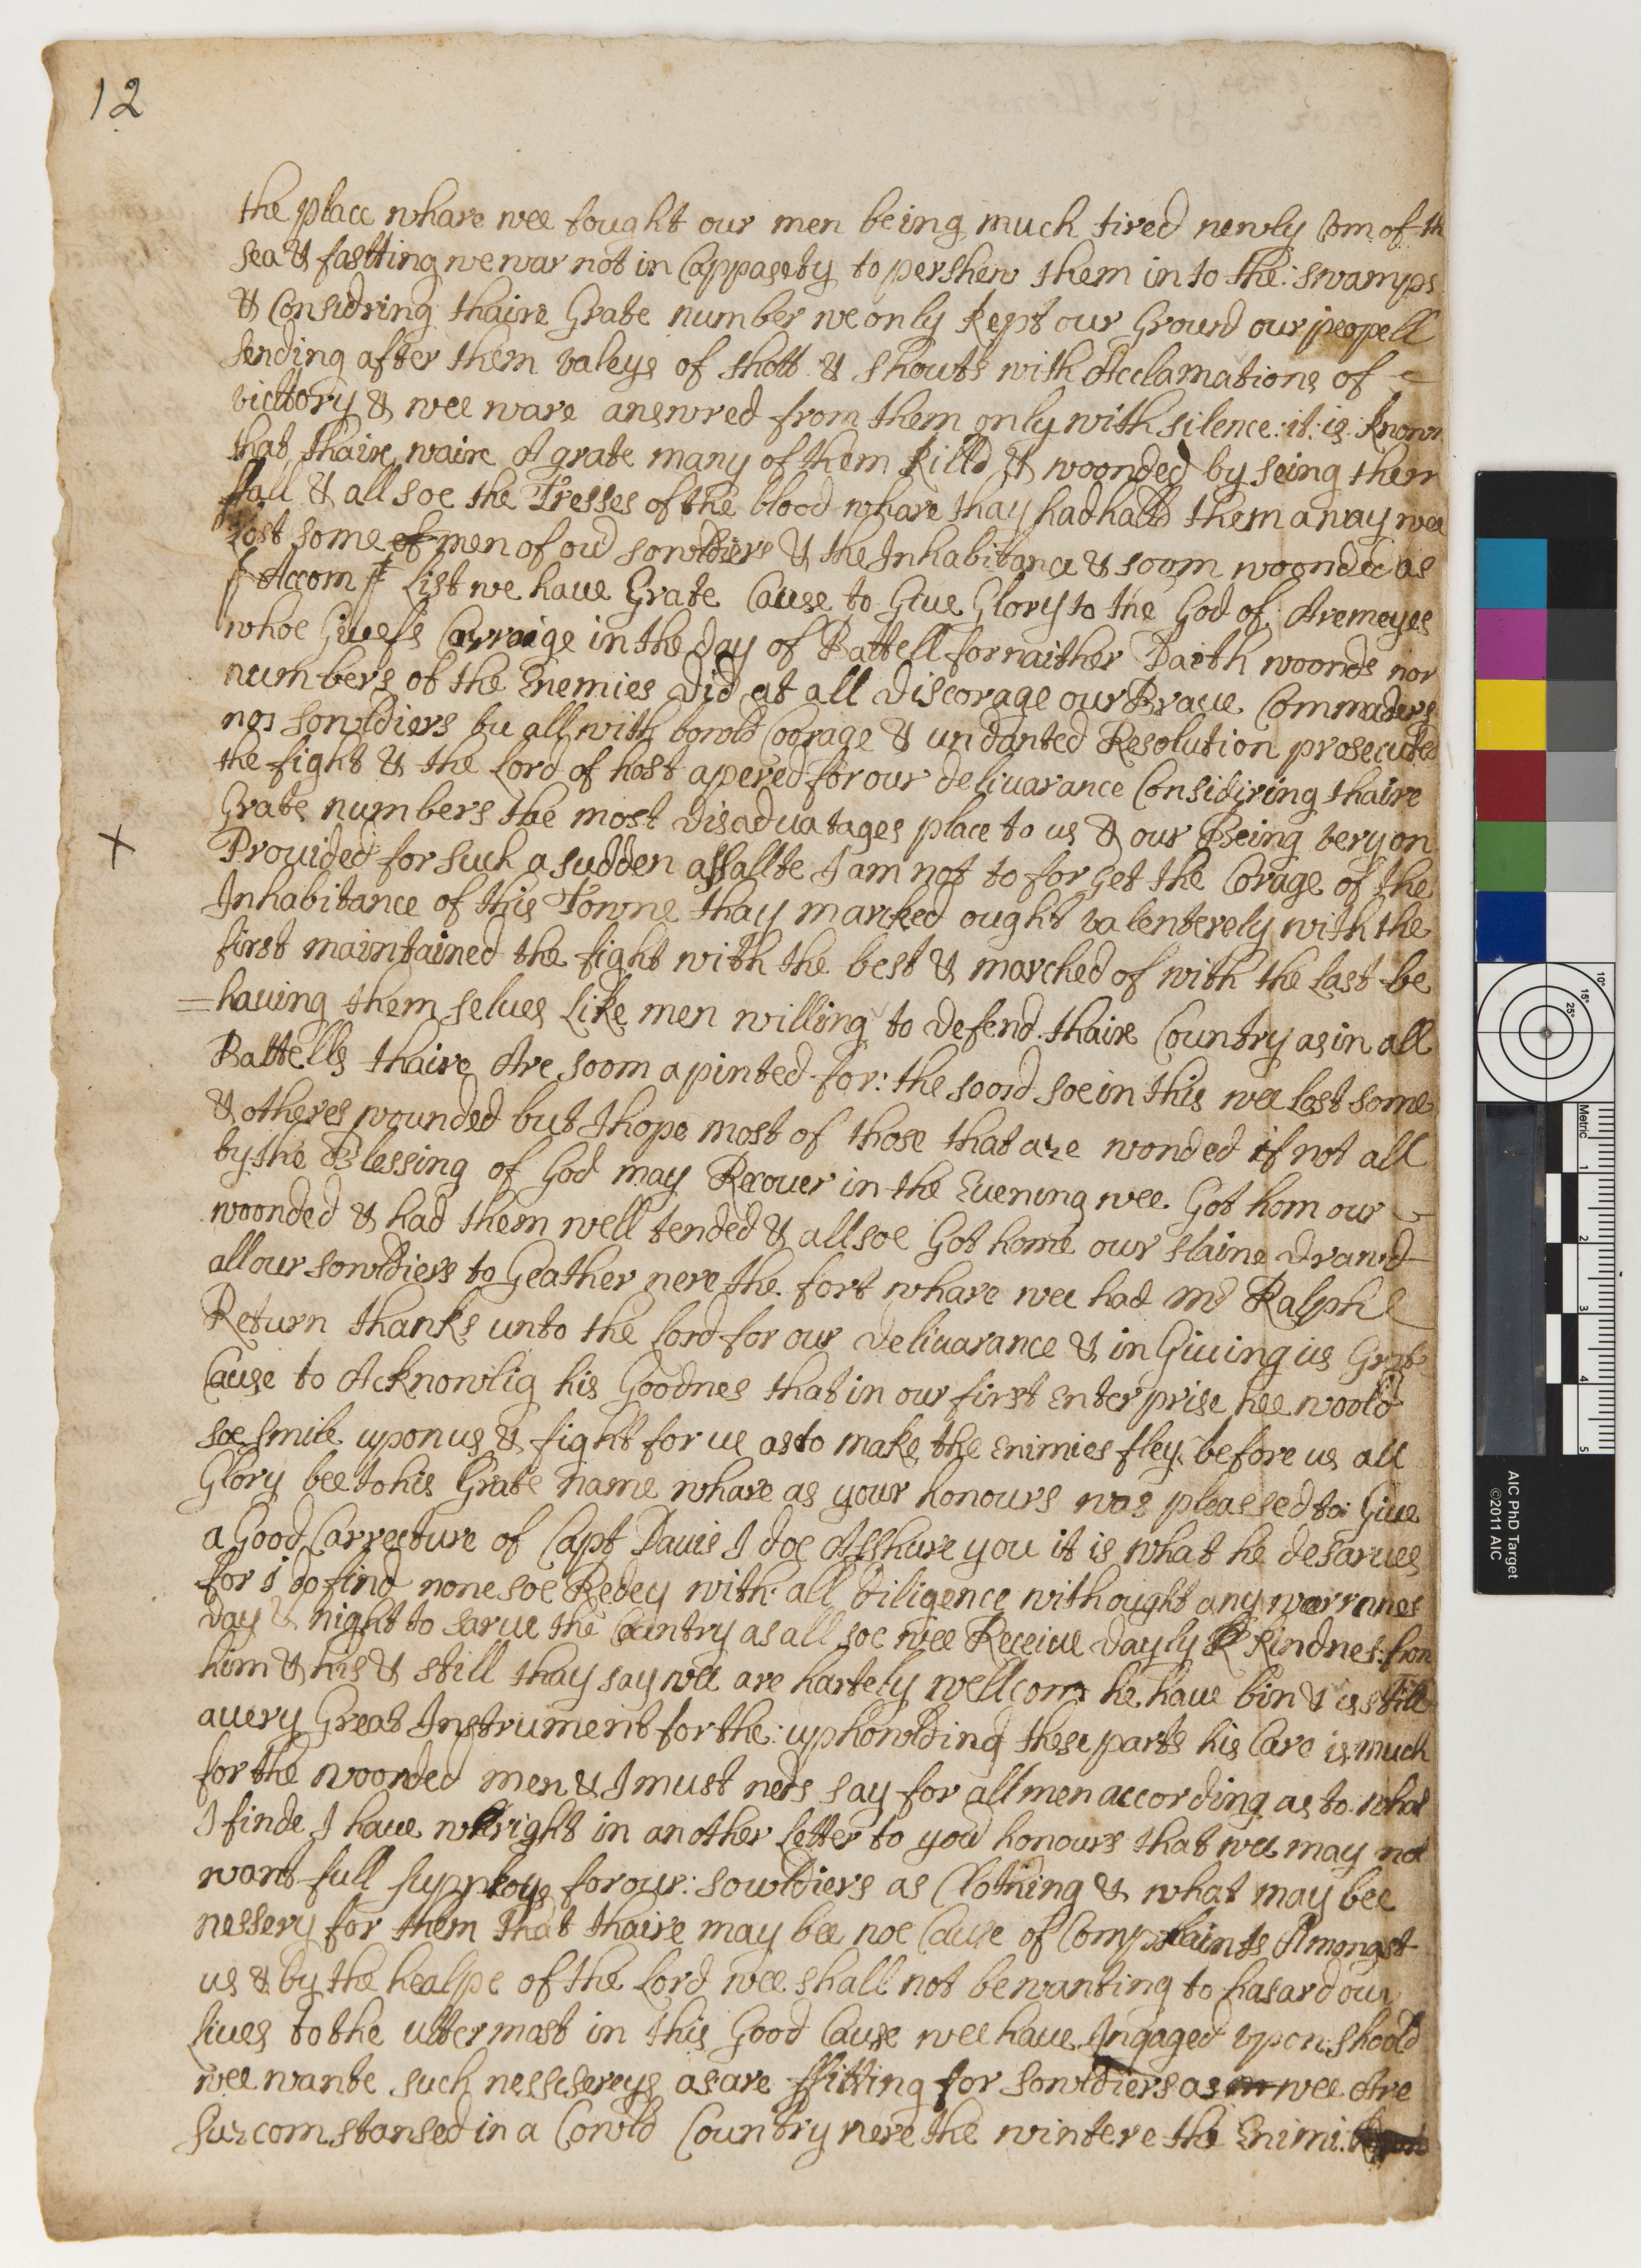 12
the place whare wee fought our men being much tired newly Com of th
sea & fastting we war not in Cappasety to pershew them in to the: swamps
& Considring thaire Grate number we only kept our Ground our peopell
sending after them valeys of shott & shouts with Acclamations of
victtory & wee ware answred from them only with silence: it: is: known
that thaire waire A grate many of them killd & woonded by seing them
ffall & all soe the Tresses of the blood whare thay had halld them away wee
Lost some of men of our sowldiers & the Inhabitance & soom woonded as
Accom List we haue Grate Cause to Giue Glory to the God of: Aremeyes
whoe Giuefs Carraige in the day of Battell for naither Daith woonds nor
numbers of the Enemies did at all discorage our Braue Commaders
nor sowldiers bu all with bowld Coorage & undanted Resolution prosecuted
the fight & the Lord of host apered for our deliuarance Considiring thaire
Grate numbers the most disaduatages place to us & our Being very on
X
Prouided for such a sudden assallte I am not to forget the Corage of the
Inhabitance of this Towne thay marcked ought valenterely with the
first maintained the fight with the best & marched of with the last be
=hauing them selues Like men willing to defend thaire Country as in all
Battells thaire Are soom apinted for: the soord soe in this wee lost some
& otheres wounded but I hope most of those that are wonded if not all
by the Blessing of God may Recouer in the Euening wee Got hom our
woonded & had them well tended & all soe Got home our slaine drawd
all our sowldiers to Geather nere the fort whare wee had Mr Ralph
Return thanks unto the Lord for our deliuarance & in Giuing us Grate
Cause to Acknowlig his Goodnes that in our first Enterprise hee woold
soe smile upon us & fight for us as to make the Enimies fley: before us all
Glory bee to his Grate name whare as your honours was pleassed to: Giue
a Good Carrecture of Capt Dauis I doe Asshure you it is what he desarues
for i do find none soe Redey with all diligence withought any warrines
day & night to sarue the Country as all soe wee Receiue dayly kindnes: from
him & his & still thay say wee are hartely wellcom he haue bin & is still
a very Great Instrument for the: uphowlding these parts his Care is much
for the woonded men & I must neds say for all men according as to what
I finde I haue wright in another Letter to your honours that wee may not
want full supploys for our: sowldiers as Clothing & what may bee
nessery for them that thaire may bee noe Cause of Complaints Amongst
us & by the healpe of the Lord wee shall not be wanting to hasard our
Liues to the uttermost in this Good Cause wee haue Ingaged upon: shoold
wee wante such nessesereys as are ffitting for sowldiers as wee Are
surcomstansed in a Cowld Country nere the wintere the Enimi
AIC PhD Target
©2011 AIC
Metric
1
2
3
4
5
10°
15°
25°